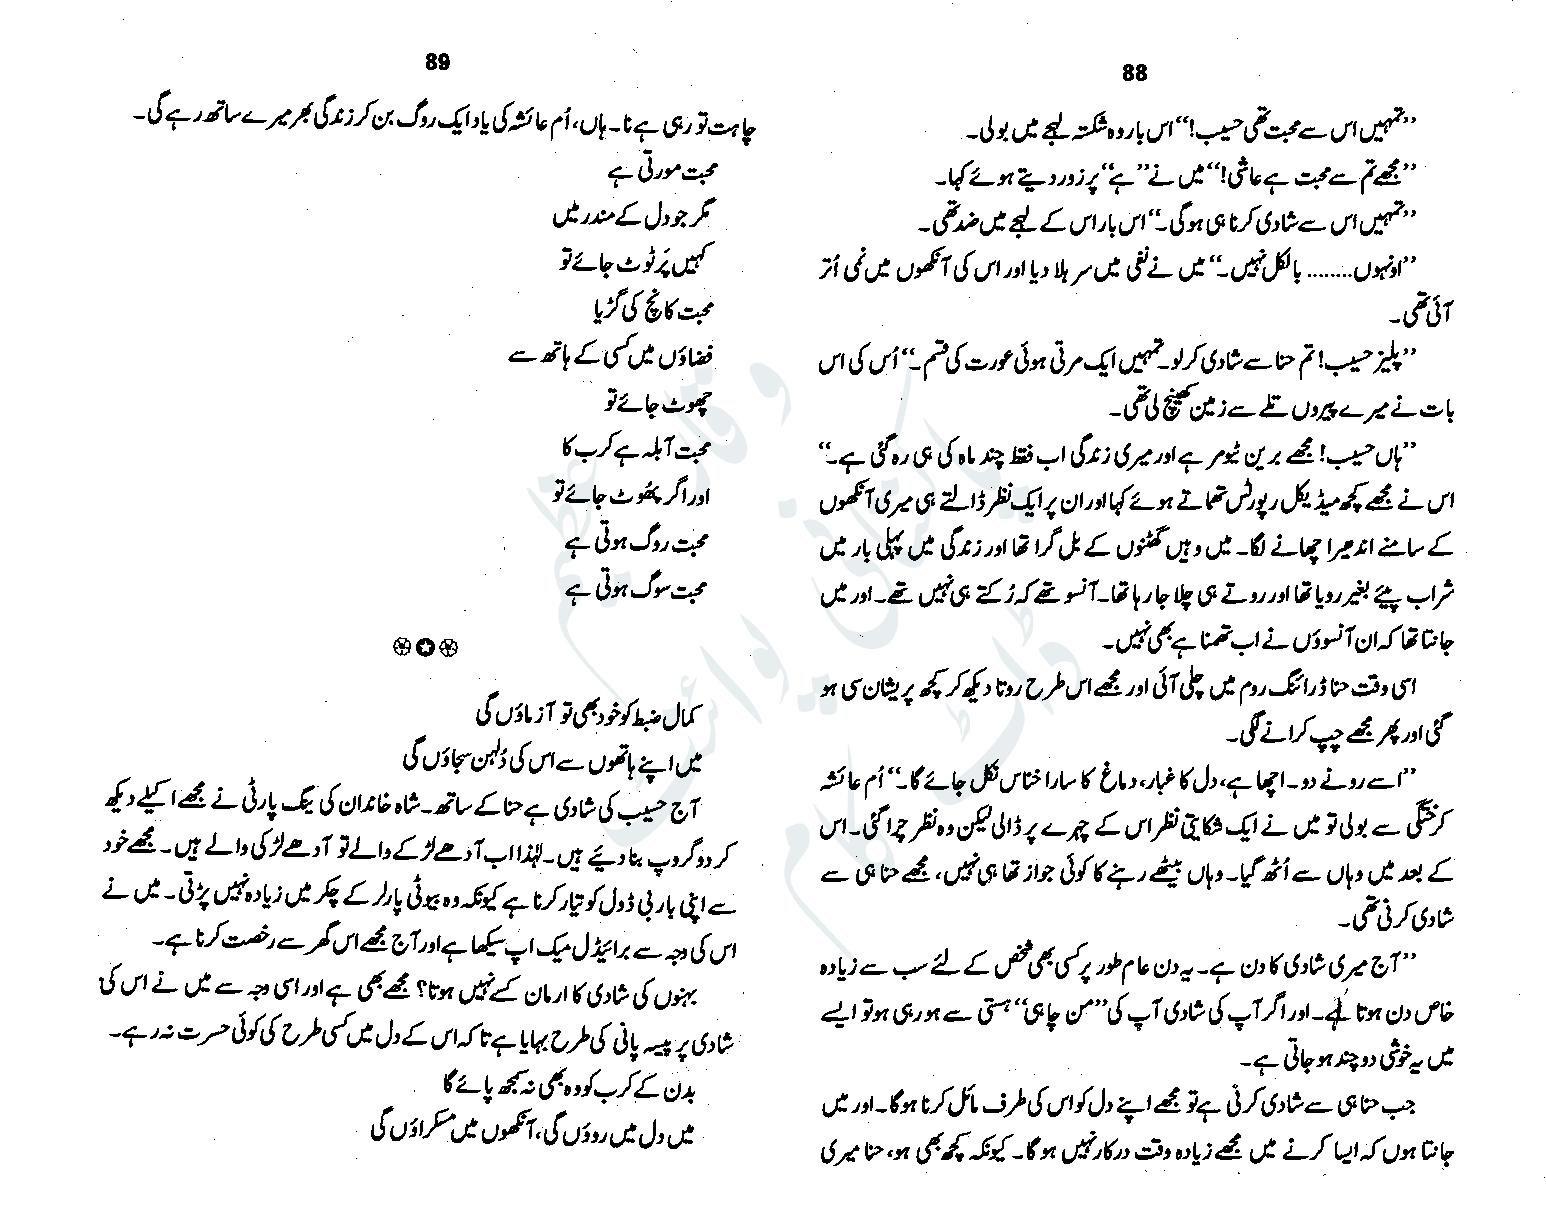 88
”تمہیں اس سے محبت تھی حسیب!“ اس بار وہ شکستہ لہجے میں بولی۔
”مجھے تم سے محبت ہے عاشی!“ میں نے ”ہے“ پر زور دیتے ہوئے کہا۔
”تمہیں اس سے شادی کرنا ہی ہوگی۔“ اس بار اس کے لہجے میں ضد تھی۔
”اونہوں........ بالکل نہیں۔“ میں نے نفی میں سر ہلا دیا اور اس کی آنکھوں میں نمی اُتر
آئی تھی۔
”پلیز حسیب! تم حنا سے شادی کر لو۔ تمہیں ایک مرتی ہوئی عورت کی قسم۔“ اُس کی اس
بات نے میرے پیروں تلے سے زمین کھینچ لی تھی۔
”ہاں حسیب! مجھے برین ٹیومر ہے اور میری زندگی اب فقط چند ماہ کی ہی رہ گئی ہے۔“
اس نے مجھے کچھ میڈیکل رپورٹس تھماتے ہوئے کہا اور ان پر ایک نظر ڈالتے ہی میری آنکھوں
کے سامنے اندھیرا چھانے لگا۔ میں وہیں گھٹنوں کے بل گرا تھا اور زندگی میں پہلی بار میں
شراب پیئے بغیر رویا تھا اور روتے ہی چلا جا رہا تھا۔ آنسو تھے کہ رُکتے ہی نہیں تھے۔ اور میں
جانتا تھا کہ ان آنسوؤں نے اب تھمنا ہے بھی نہیں۔
اسی وقت حنا ڈرائنگ روم میں چلی آئی اور مجھے اس طرح روتا دیکھ کر کچھ پریشان سی ہو
گئی اور پھر مجھے چپ کرانے لگی۔
”اسے رونے دو۔ اچھا ہے، دل کا غبار، دماغ کا سارا خناس نکل جائے گا۔“ اُم عائشہ
کرختگی سے بولی تو میں نے ایک شکایتی نظر اس کے چہرے پر ڈالی لیکن وہ نظر چرا گئی۔ اس
کے بعد میں وہاں سے اُٹھ گیا۔ وہاں بیٹھے رہنے کا کوئی جواز تھا ہی نہیں، مجھے حنا ہی سے
شادی کرنی تھی۔
”آج میری شادی کا دن ہے۔ یہ دن عام طور پر کسی بھی شخص کے لئے سب سے زیادہ
خاص دن ہوتا ہے۔ اور اگر آپ کی شادی آپ کی ”من چاہی“ ہستی سے ہو رہی ہو تو ایسے
میں یہ خوشی دو چند ہو جاتی ہے۔
جب حنا ہی سے شادی کرنی ہے تو مجھے اپنے دل کو اس کی طرف مائل کرنا ہوگا۔ اور میں
جانتا ہوں کہ ایسا کرنے میں مجھے زیادہ وقت درکار نہیں ہوگا۔ کیونکہ کچھ بھی ہو، حنا میری
89
چاہت تو رہی ہے نا۔ ہاں، اُم عائشہ کی یاد ایک روگ بن کر زندگی بھر میرے ساتھ رہے گی۔
محبت مورتی ہے
مگر جو دل کے مندر میں
کہیں پر ٹوٹ جائے تو
محبت کانچ کی گڑیا
فضاؤں میں کسی کے ہاتھ سے
چھوٹ جائے تو
محبت آبلہ ہے کرب کا
اور اگر پھوٹ جائے تو
محبت روگ ہوتی ہے
محبت سوگ ہوتی ہے
کمال ضبط کو خود بھی تو آزماؤں گی
میں اپنے ہاتھوں سے اس کی دُلہن سجاؤں گی
آج حسیب کی شادی ہے حنا کے ساتھ۔ شاہ خاندان کی ینگ پارٹی نے مجھے اکیلے دیکھ
کر دو گروپ بنا دیئے ہیں۔ لہٰذا اب آدھے لڑکے والے تو آدھے لڑکی والے ہیں۔ مجھے خود
سے اپنی باربی ڈول کو تیار کرنا ہے کیونکہ وہ بیوٹی پارلر کے چکر میں زیادہ نہیں پڑتی۔ میں نے
اس کی وجہ سے برائیڈل میک اپ سیکھا ہے اور آج مجھے اس گھر سے رخصت کرنا ہے۔
بہنوں کی شادی کا ارمان کسے نہیں ہوتا؟ مجھے بھی ہے اور اسی وجہ سے میں نے اس کی
شادی پر پیسہ پانی کی طرح بہایا ہے تاکہ اس کے دل میں کسی طرح کی کوئی حسرت نہ رہے۔
بدن کے کرب کو وہ بھی نہ سمجھ پائے گا
میں دل میں روؤں گی، آنکھوں میں مسکراؤں گی